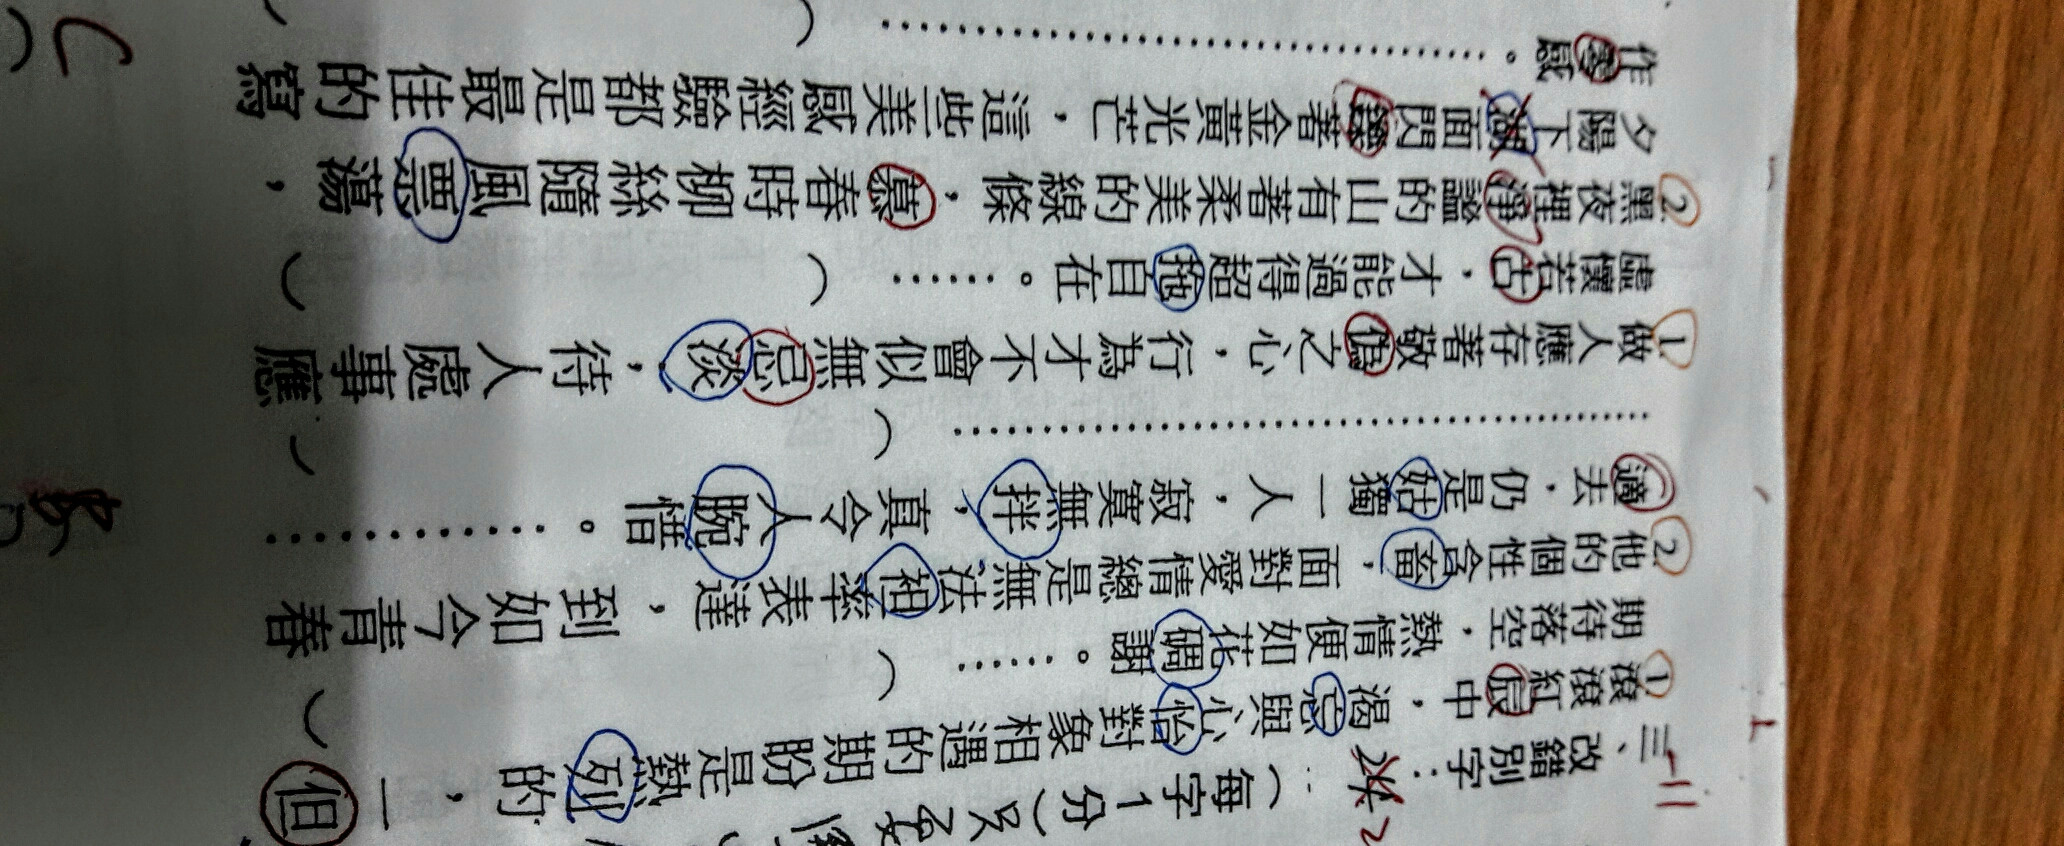 三、改錯別字：（每字1分）只要
①滾滾紅辰中，渴忘與心怡對象相遇的期盼是熱列的，一但
期待落空，熱情便如花碉謝。……（ ）
②他的個性含畜，面對愛情總是無法袒率表達，到如今青春
適去，仍是姑獨一人，寂寞無拌，真令人腕惜。…………
…………………………（ ）
①做人應存著敬偎之心，行為才不會似無忌淡，待人處事應
虛懷若古，才能過得超拖自在。……（ ）
②黑夜裡淨謐的山有著柔美的線條，慕春時柳絲隨風票蕩，
夕陽下湖面閃鑠著金黃光芒，這些美感經驗都是最佳的寫
作零感。…………………………（ ）